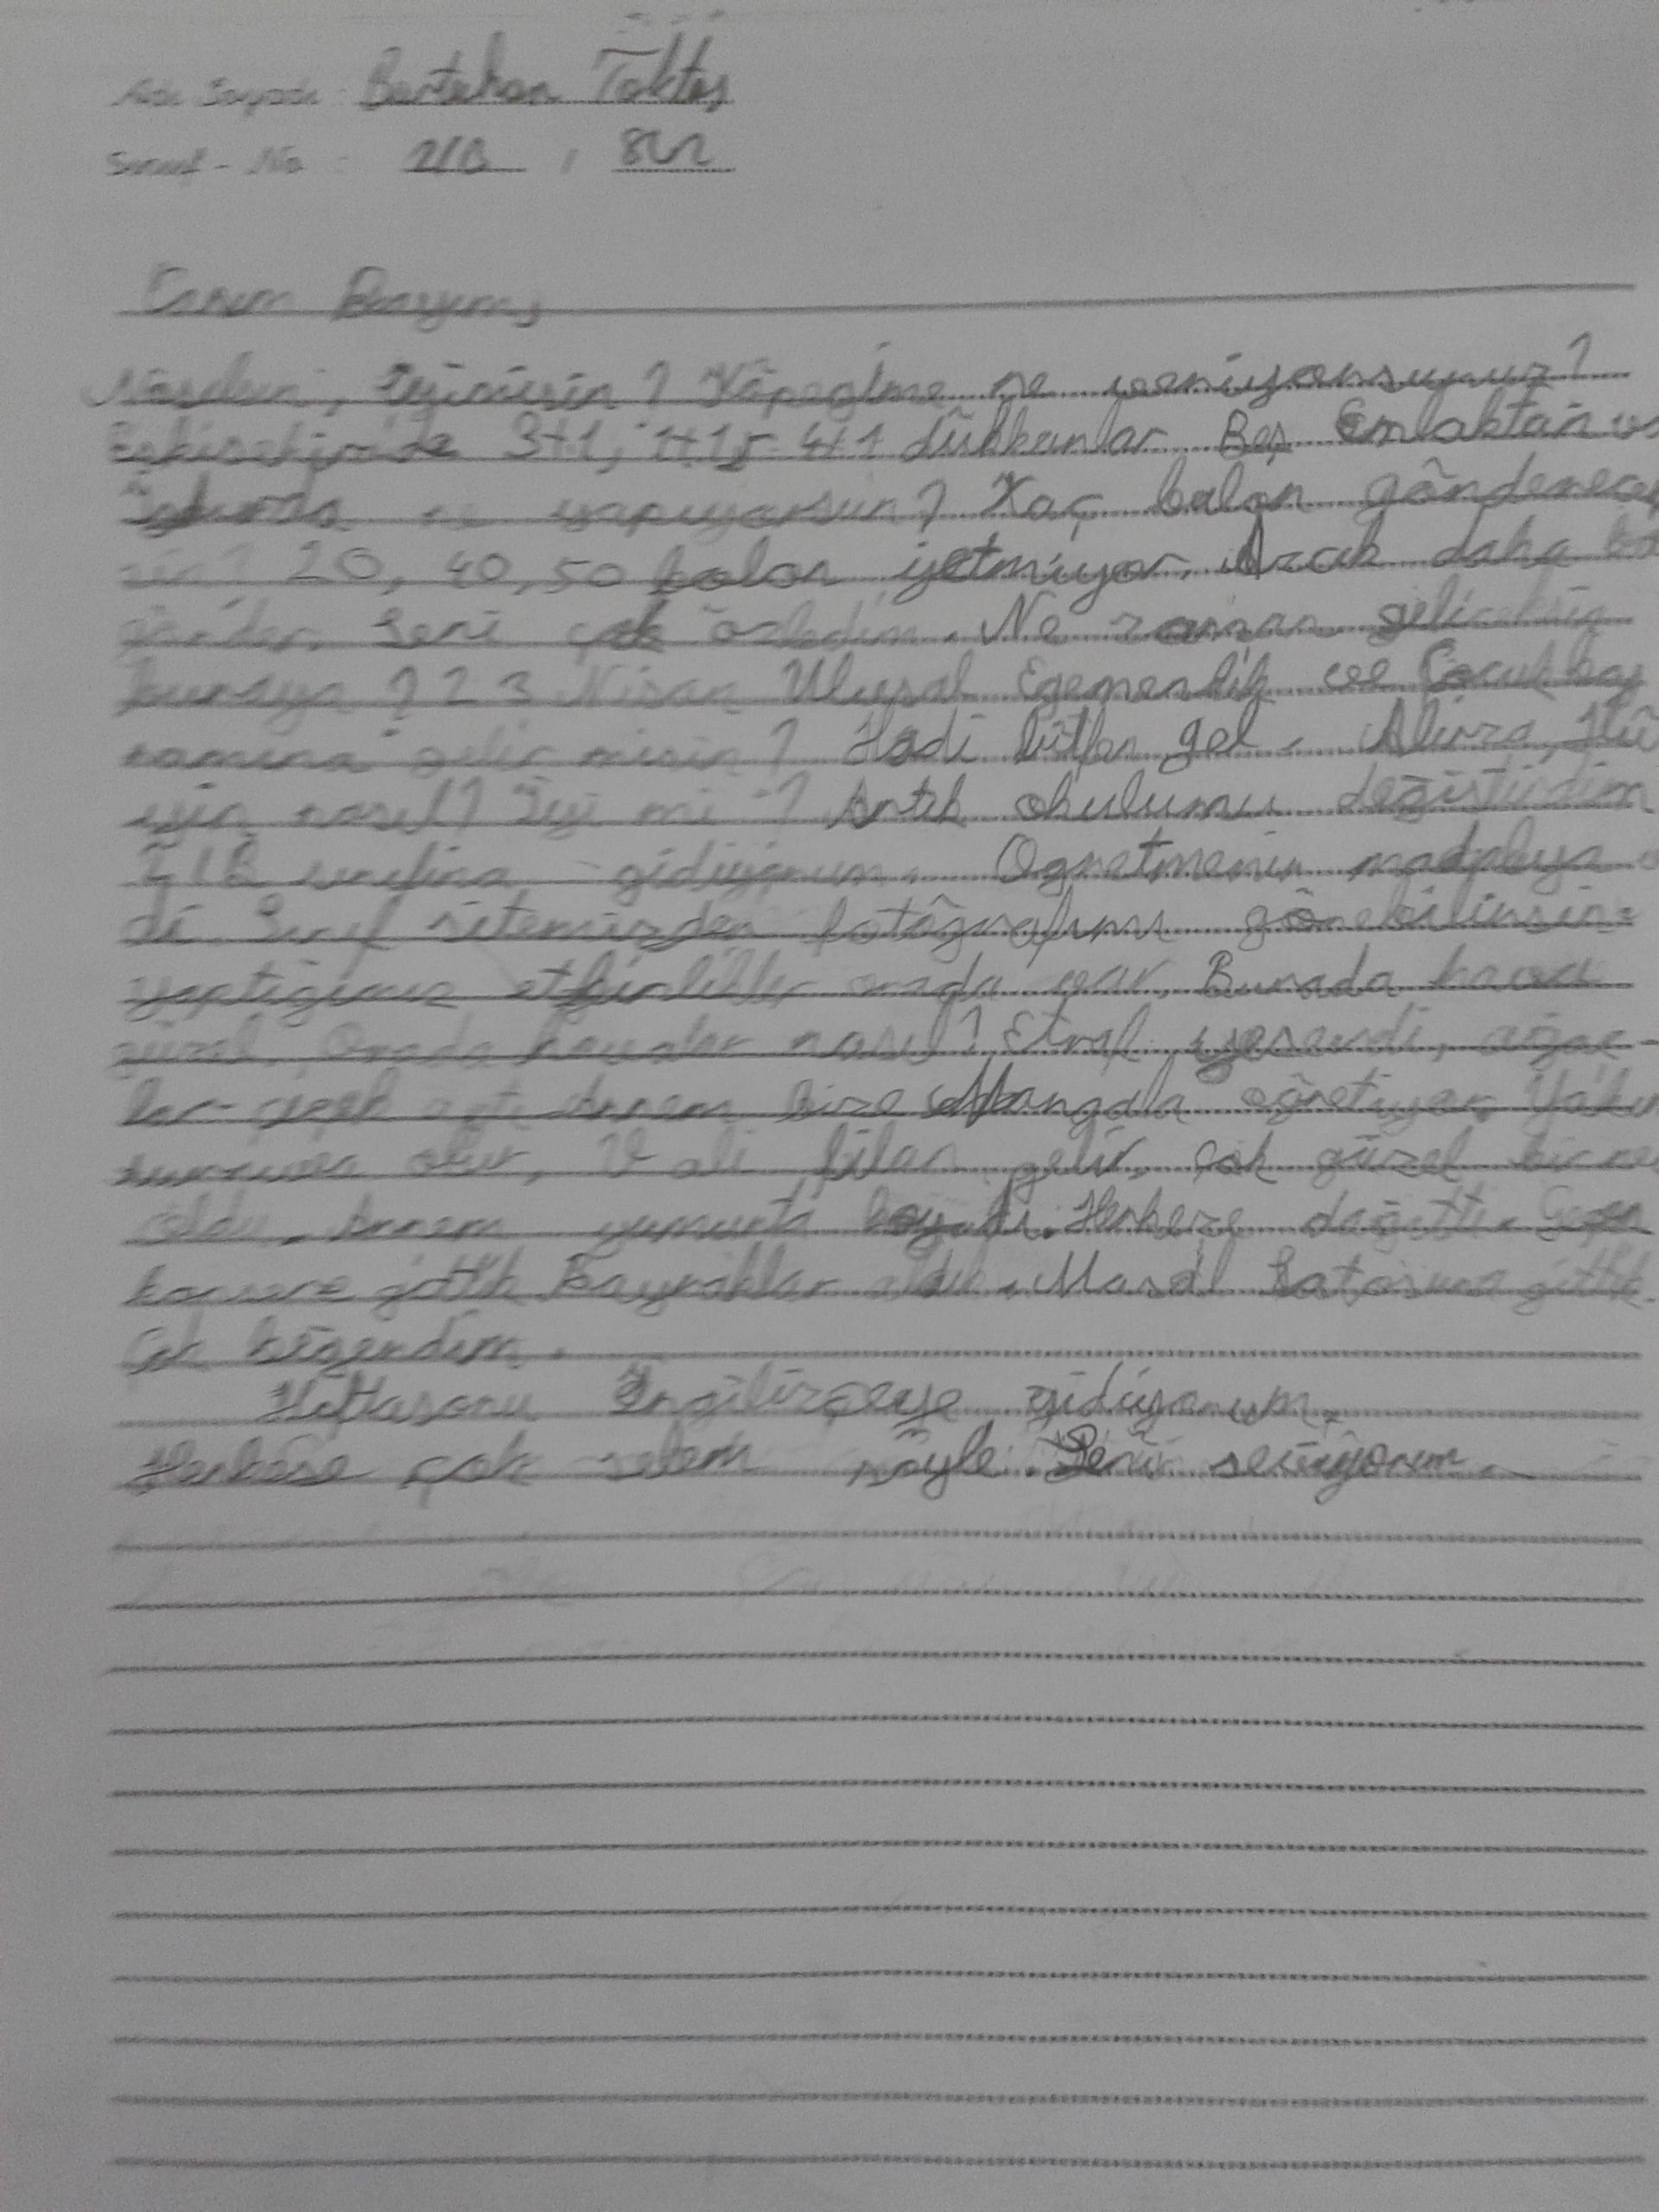 Adı Soyadı: Bertuhan Toktaş
Sınıf - No : 2/B ,
Canım
Nasılsın, iyimisin? Köpeğime ne veriyorsunuz?
Eskişehirde 3+1, 1+1, 4+1 dükkanlar Beş Emlaktan
yapıyorsun? Kaç balon gönderecek
sin? 20, 40, 50 balon yetmiyor. Azcık daha
gönder. Seni çok özledim. Ne zaman geliceksin
buraya? 23 Nisan Ulusal Egemenlik ve Çocuk bay
ramına gelir misin? Hadi lütfen gel. Alirza, Hü
nasıl? İyi mi? Artık okulumu değiştirdim
2/B sınıfına gidiyorum. Ogretmenim madalya
Sınıf sitemizden fotoğrafımı görebilirsin.
yaptığımız etkinlikler orada var. Burada hava
güzel. Orada havalar nasıl? Etraf yeşerdi, ağaç-
lar çiçek açtı Annem bize Mangala öğretiyor.
olur, Vali filan gelir. Çok güzel bir
oldu. Annem yumurta boyadı. Herkeze dağıttı. Geçen
konsere gittik Bayraklar aldık. Masal Şatosuna gittik.
Çok beğendim.
Haftasonu İngilizceye gidiyorum.
Herkese çok selam söyle. Seni seviyorum.